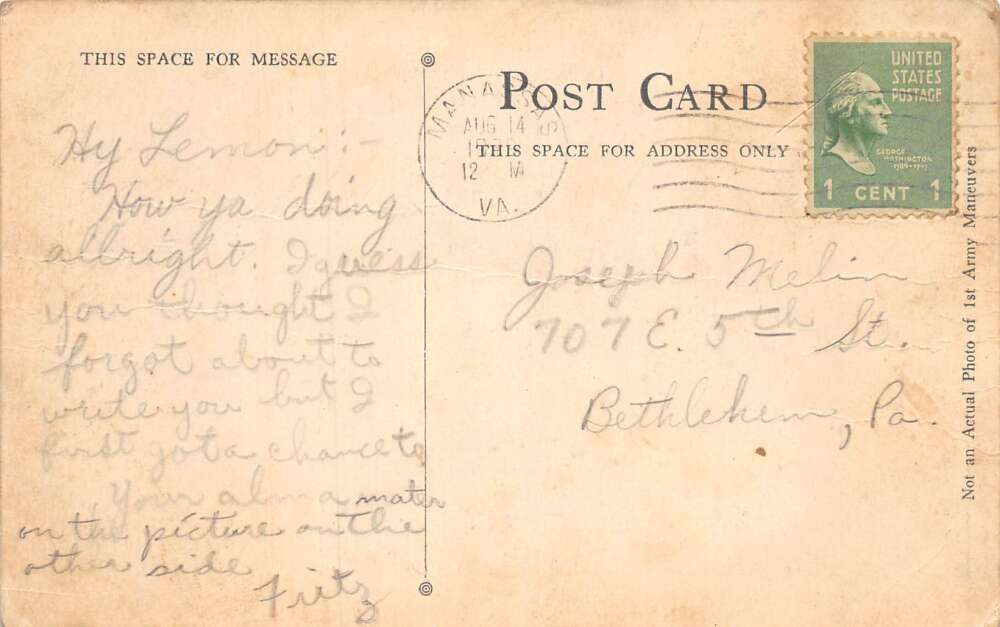 THIS SPACE FOR MESSAGE
Hy Lemon :-
How ya doing
allright. I guess
you thought I
forgot about to
write you but I
first gota chance to
Your alma mater
on the picture on the
other side
Fritz
POST CARD
THIS SPACE FOR ADDRESS ONLY
MANASSAS
AUG 14
12 M
VA.
UNITED
STATES
POSTAGE
GEORGE
WASHINGTON
1789-1797
1 CENT 1
Joseph Melin
707 E. 5th St.
Bethlehem, Pa.
Not an Actual Photo of 1st Army Maneuvers